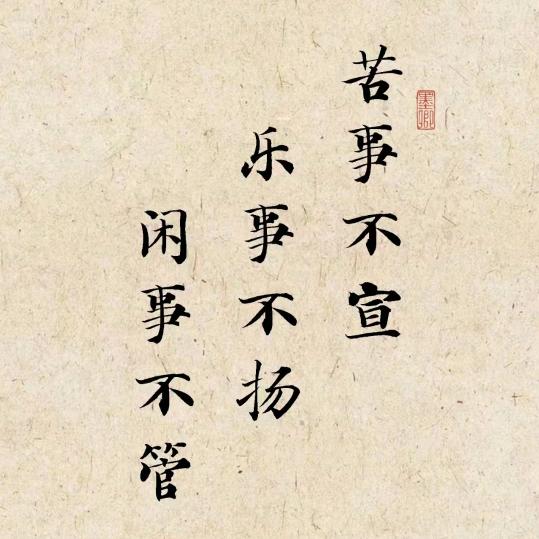 苦事不宣
乐事不扬
闲事不管
墨卿